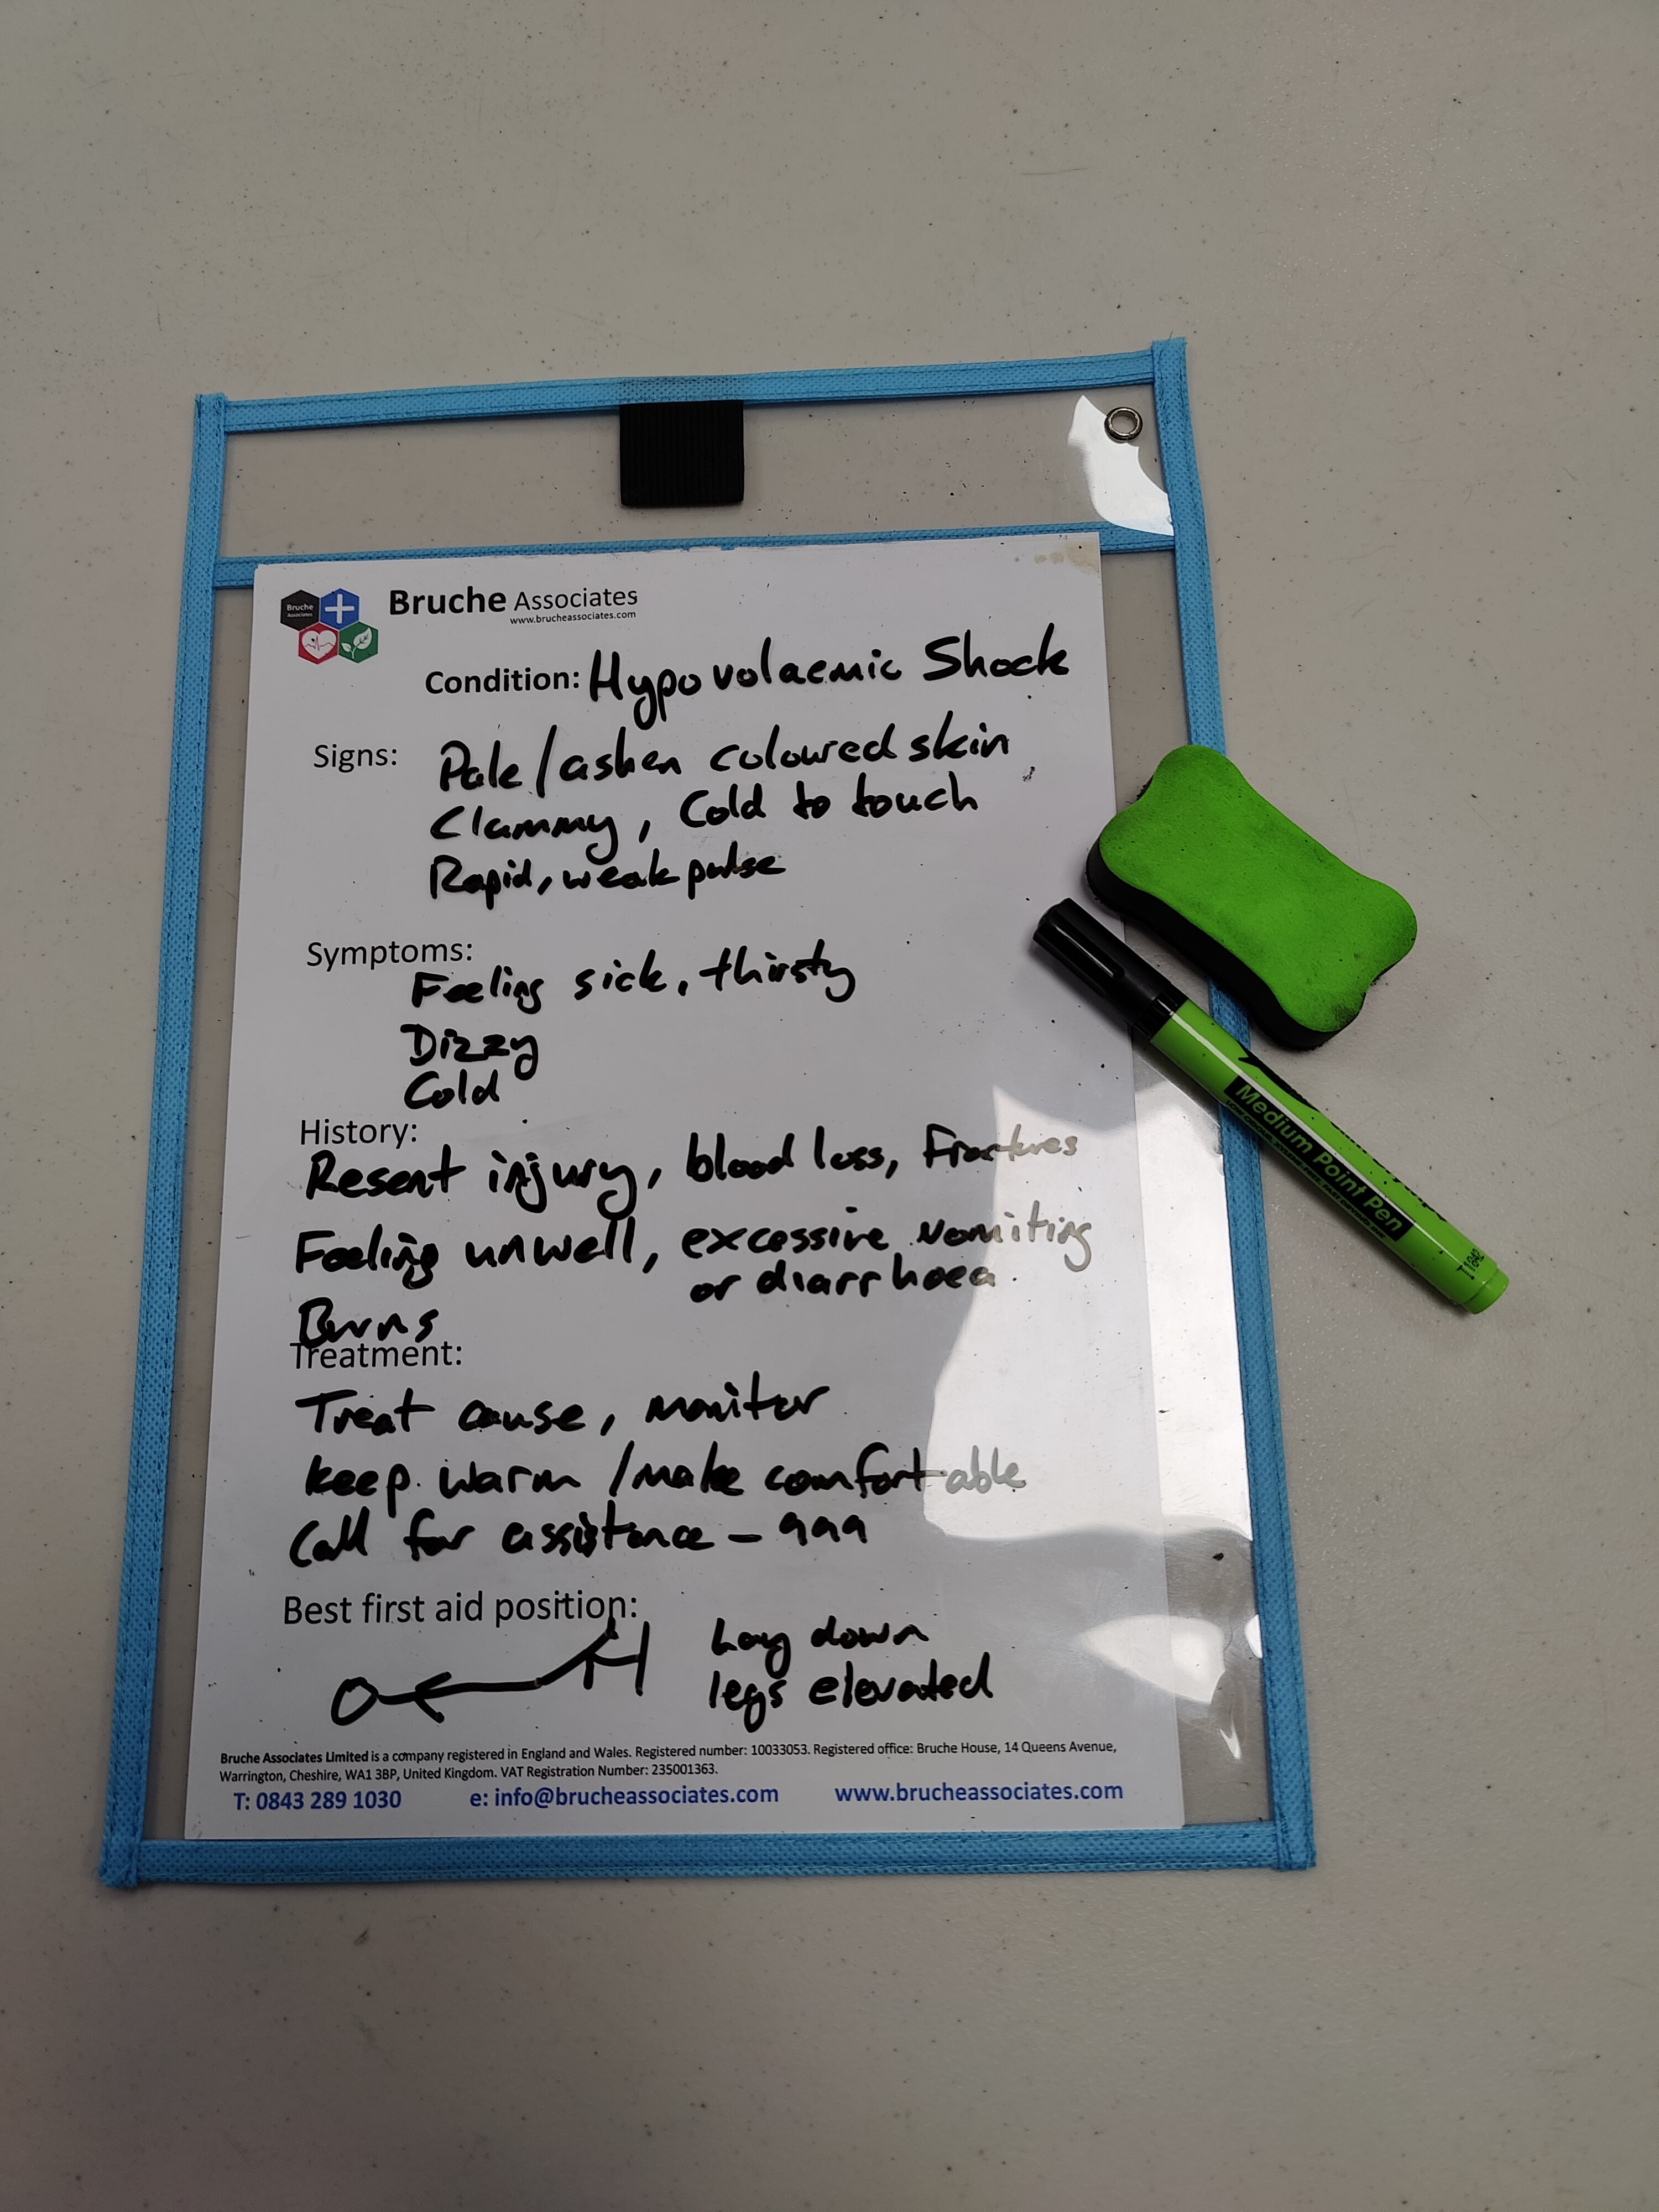 Bruche Associates
Bruche Associates
www.brucheassociates.com
Condition: Hypovolaemic Shock
Signs: Pale/ashen coloured skin
Clammy, Cold to touch
Rapid, weak pulse
Symptoms:
Feeling sick, thirsty
Dizzy
Cold
History:
Resent injury, blood loss, Fractures
Feeling unwell, excessive vomiting
or diarrhoea.
Burns
Treatment:
Treat cause, monitor
keep warm /make comfortable
Call for assistance - 999
Best first aid position:
Lay down
legs elevated
Bruche Associates Limited is a company registered in England and Wales. Registered number: 10033053. Registered office: Bruche House, 14 Queens Avenue,
Warrington, Cheshire, WA1 3BP, United Kingdom. VAT Registration Number: 235001363.
T: 0843 289 1030 e: info@brucheassociates.com www.brucheassociates.com
Medium Point Pen